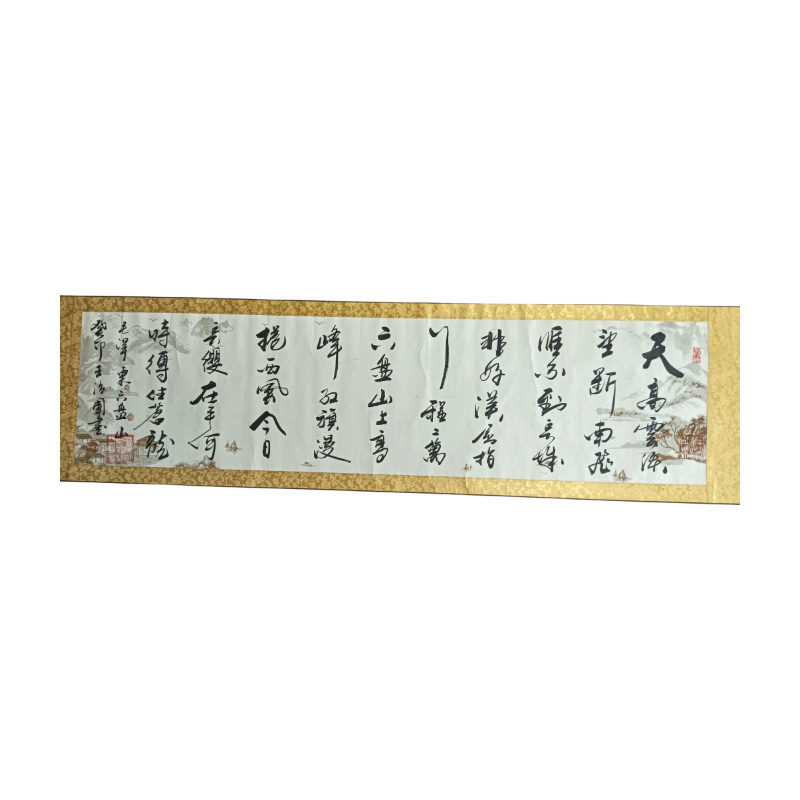 天高雲淡
望斷南飛
雁不到長城
非好漢屈指
行程二萬
六盘山上高
峰紅旗漫
捲西風今日
長纓在手何
時縛住蒼龍
毛澤東六盘山
癸卯王治國書